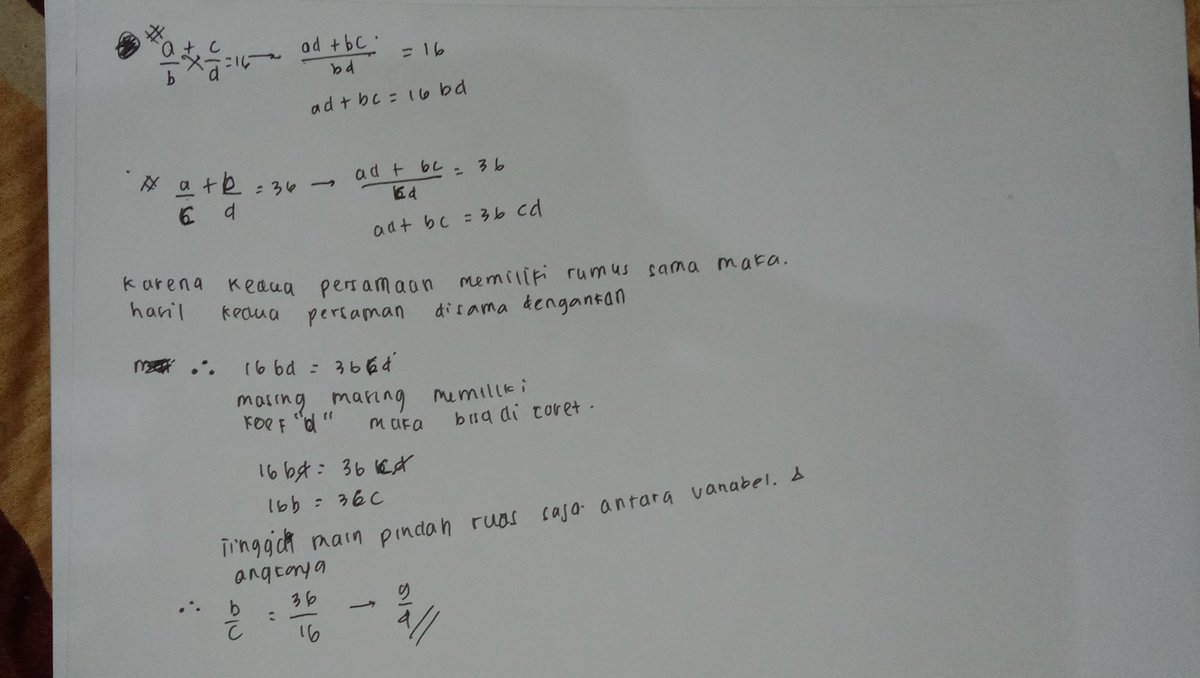 * a/b + c/d = 16 → (ad + bc)/bd = 16
ad + bc = 16 bd
* a/c + b/d = 36 → (ad + bc)/cd = 36
ad + bc = 36 cd
Karena kedua persamaan memiliki rumus sama maka.
hasil kedua persaman disama dengankan
∴ 16 bd = 36 cd
masing masing memiliki
koef "d" maka bisa di coret.
16 bd = 36 cd
16b = 36 c
Tinggal main pindah ruas saja antara variabel. &
angkanya
∴ b/c = 36/16 → 9/4 //